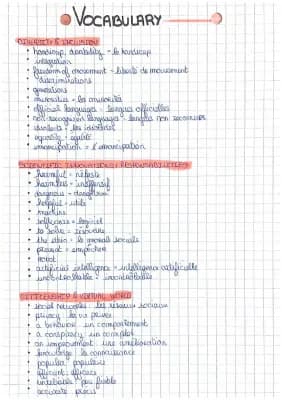 VOCABULARY
DIVERSITY & INCLUSION
handicap, disability = le handicap
integration
freedom of movement = liberté de mouvement
discriminations
generations
minorities = la minorité
official languages = langues officielles
non-recognition languages = langues non reconnues
identity =
equality = égalité
emancipation = l'émancipation
SCIENTIFIC INNOVATIONS & RESPONSABILITIES
harmful = néfaste
harmless = inoffensif
dangerous = dangereux
helpful = utile
machine
software = logiciel
to solve = résoudre
the ethic = la morale sociale
prevent = empêcher
robot
artificial intelligence = intelligence artificielle
uncontrollable = incontrôlable
CITIZENSHIP & VIRTUAL WORLD
social networks les réseaux sociaux
privacy la vie privée
a behavior un comportement
a conspiracy un complot
an improvement une amélioration
knowledge la connaissance
popular populaire
efficient efficace
unreliable peu fiable
accurate précis